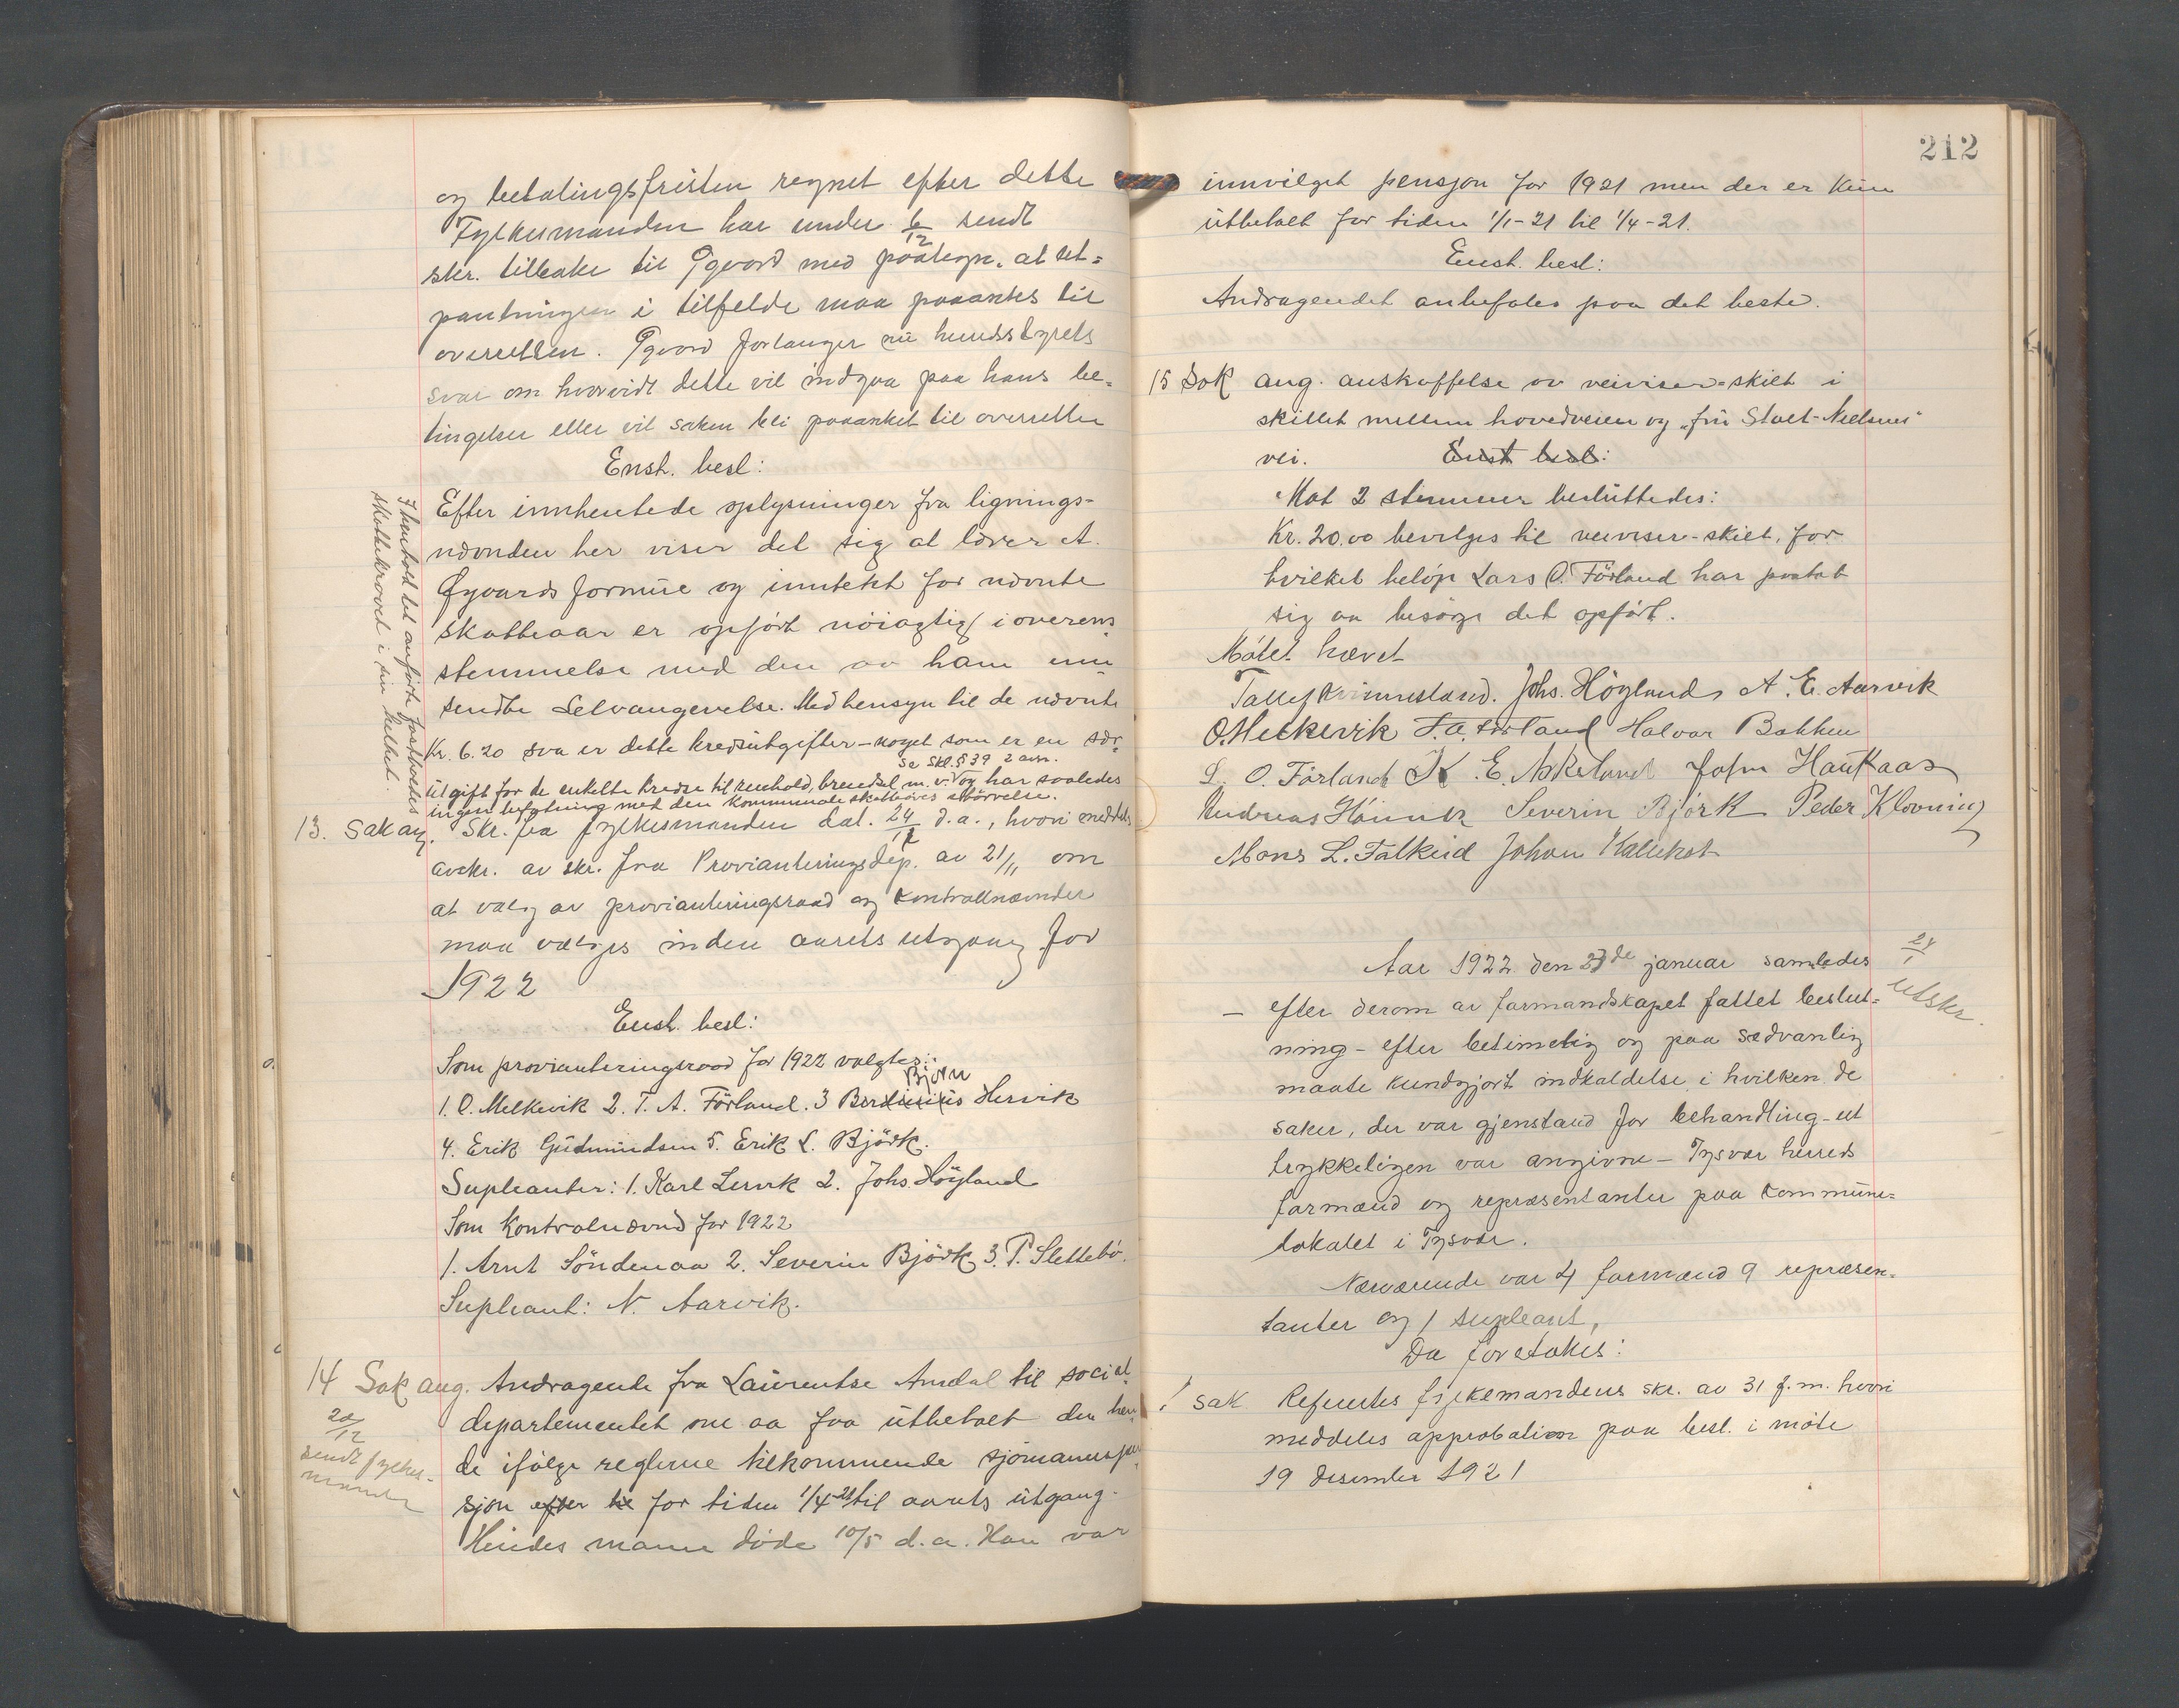 og betalingsfristen regnet efter dette
Fylkesmanden har under 6/12 sendt
skr. tilbake til Øgvard med paategn. at ut=
pantningen i tilfelde maa paaankes til
overretten. Øgvard forlanger nu herredsstyrets
svar om hvorvidt dette vil indgaa paa hans be=
tingelser eller vil saken bli paaanket til overretten
Enst. besl:
Efter innhentede oplysninger fra lignings-
nævnden her viser det sig at lærer A.
Øgvards formue og inntekt for nævnte
skatteaar er opført nöiagtig i overens
stemmelse med den av ham inn
sendte Selvangevelse. Med hensyn til de nævnte
Kr. 6.20 saa er dette kredsutgifter - noget som er en sær-
Se Skl. § 39 2 avsn.
utgift for de enkelte kredse til renhold, brendsel m.v. og har saaledes
ingen befatning med den kommunale skatteöres störrelse.
I henhold til anførte fastholdes
skattekravet i sin helhet.
13. Sak ang. Skr. fra fylkesmanden dat. 24/12 d.a., hvori meddeles
avskr. av skr. fra Provianteringsdep. av 21/11 om
at valg av provianteringsraad og kontrollnævnder
maa vælges inden aarets utgang for
1922
Enst. besl:
Som provianteringsraad for 1922 valgtes:
Bjørn
1. O. Melkevik 2. T. A. Förland. 3 Berdinius Hervik
4. Erik Gudmundsen 5. Erik L. Björk.
Supleanter: 1. Karl Lervik 2. Johs. Höyland
Som Kontrolnævnd for 1922
1. Arnt Söndenaa 2. Severin Björk 3. P. Slettebö.
Supleant: N. Aarvik.
14 Sak ang. Andragende fra Laurentse Amdal til social
20/12
sendt fylkes-
manden
departementet om aa faa utbetalt den hen
de ifölge reglerne tilkommende sjömannspen
sjon efter til for tiden 1/4-21 til aarets utgang.
Hendes mann döde 10/5 d.a. Han var
212
innvilget pensjon for 1921 men der er kun
utbetalt for tiden 1/1-21 til 1/4-21.
Enst. besl:
Andragendet anbefales paa det beste.
15 Sak ang. anskaffelse av veiviser-skilt i
skillet mellem hovedveien og "fru Stolt-Nielsens"
vei. Enst besl:
Mot 2 stemmer besluttedes:
Kr. 20.00 bevilges til veiviser-skilt, for
hvilket belöp Lars O. Förland har paatat
sig aa besörge det opfört.
Mötet hævet
Tallef Kvinnesland. Johs. Höyland A. E. Aarvik
O. Melkevik T. A. Förland Halvar Bakken
L. O. Förland K. E. Askeland John Haukaas
Andreas Hönnik Severin Björk Peder Klovning
Mons L. Falkeid Johan Kallekot
Aar 1922 den 23de januar samledes
24/1
utskr.
- efter derom av formandskapet fattet beslut=
ning - efter betimelig og paa sædvanlig
maate kundgjort indkaldelse i hvilken de
saker, der var gjenstand for behandling - ut
trykkeligen var angivne - Tysvær herreds
formænd og repræsentanter paa Kommune=
lokalet i Tysvær.
Nærværende var 4 formænd 9 repræsen-
tanter og 1 supleant,
Da foretokes:
1 sak Refertes fylkemandens skr. av 31 f.m. hvori
meddeles approbation paa besl. i möte
19 desember 1921